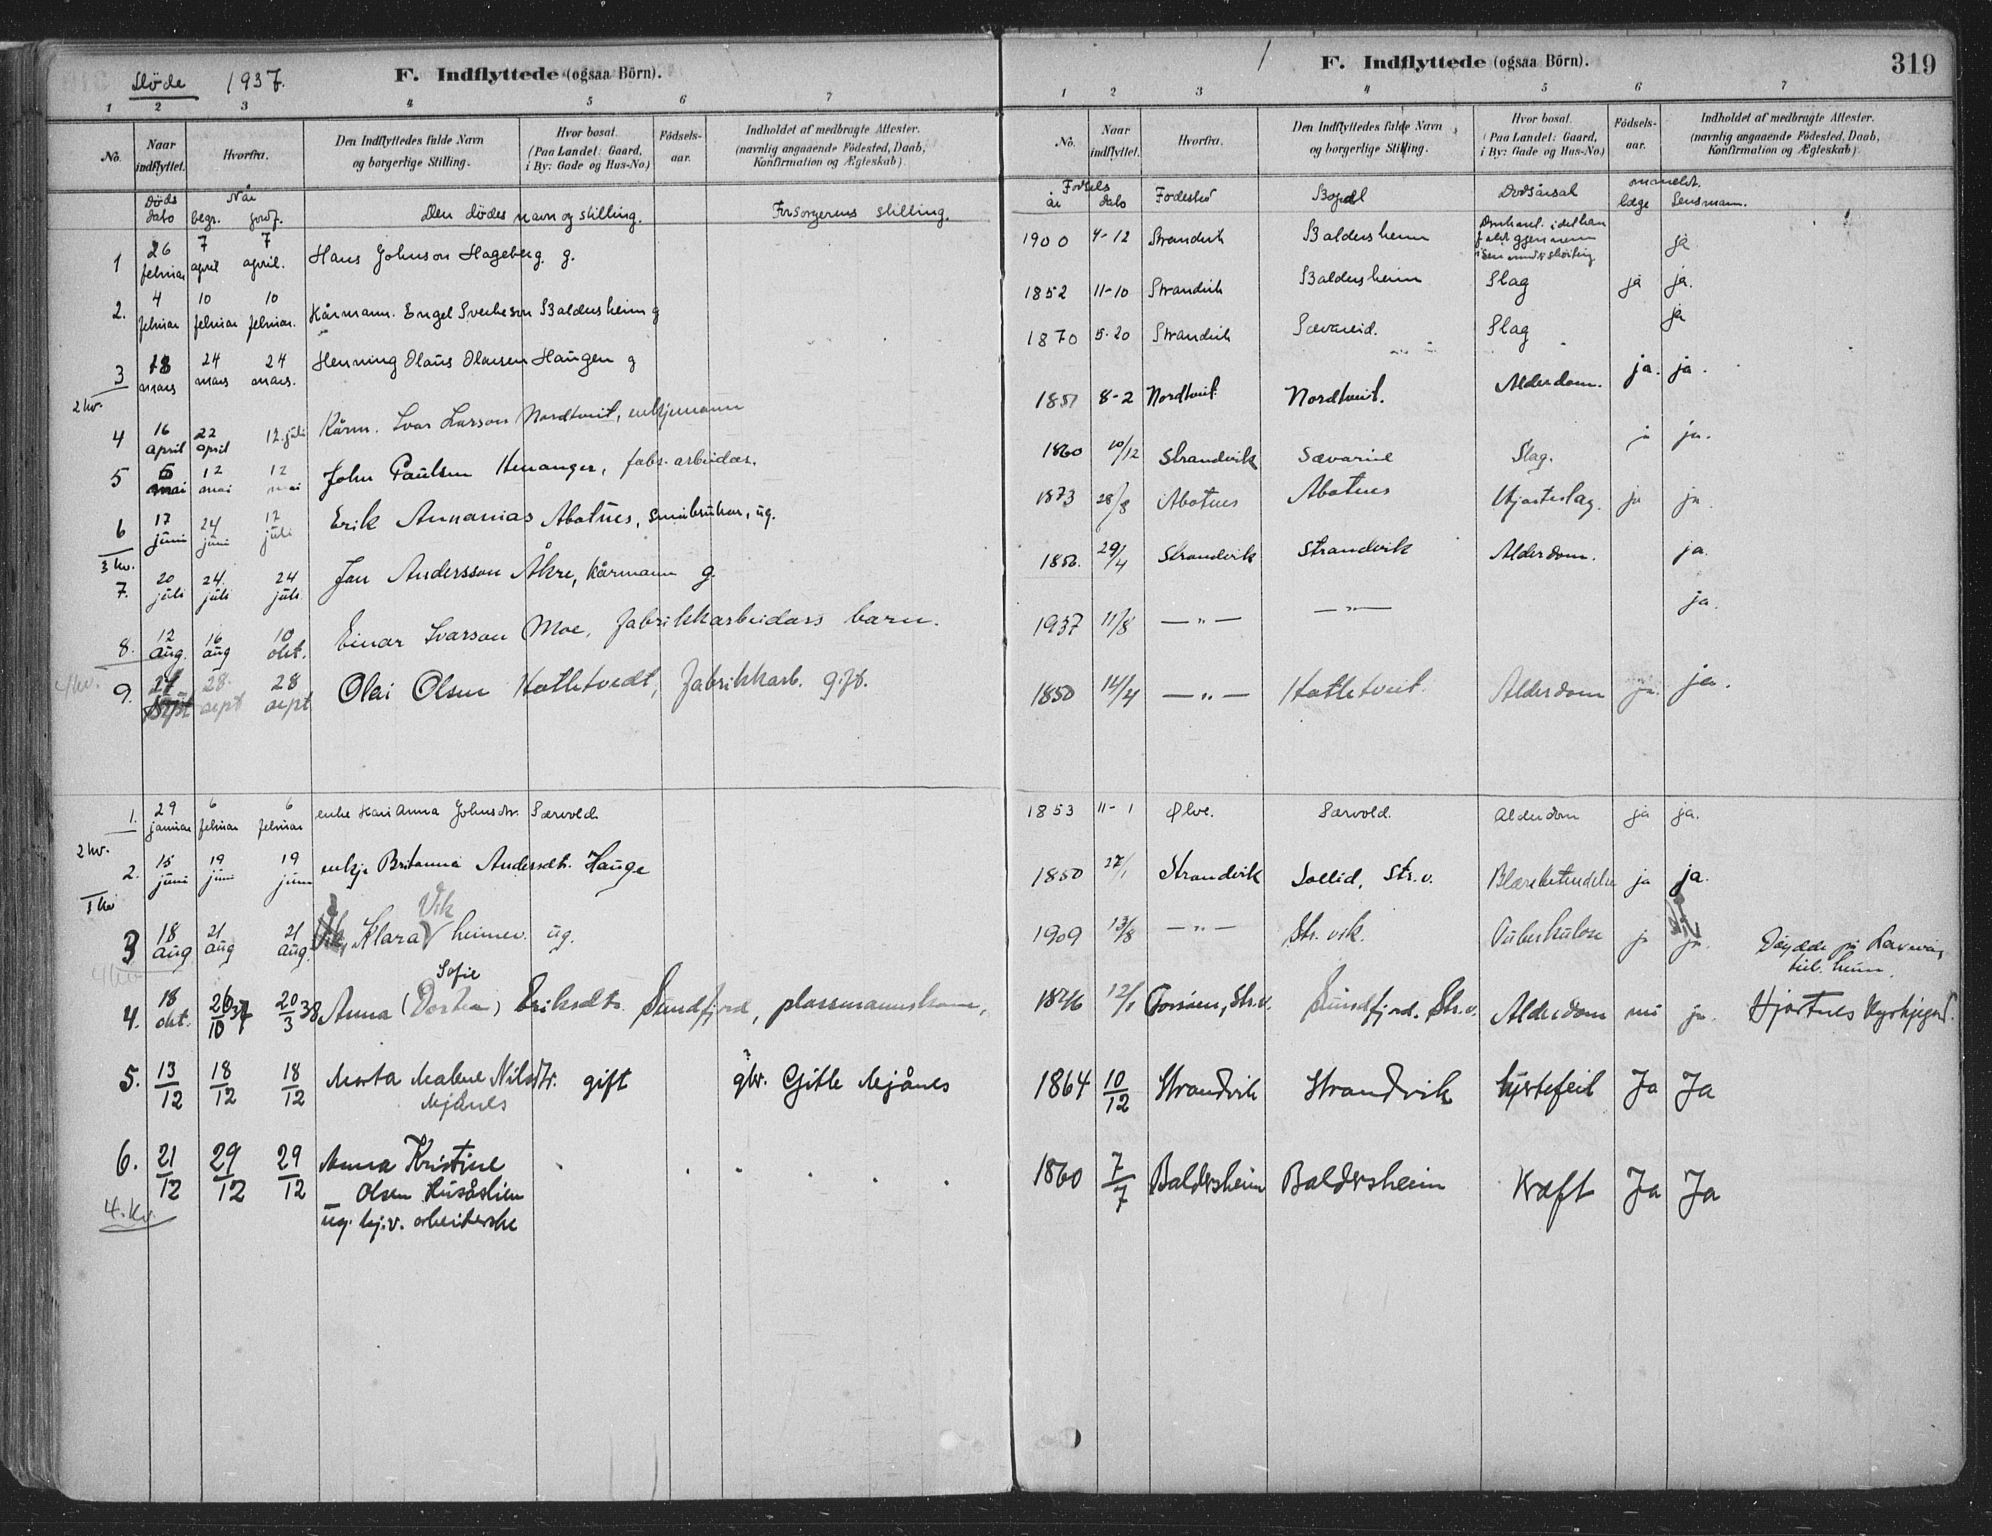 Døde 1937. F. Indflyttede (ogsaa Börn).
1 2 3 4 5 6 7
No. Naar indflyttet. Hvorfra. Den Indflyttedes fulde Navn og borgerlige Stilling. Hvor bosat. (Paa Landet: Gaard, i By: Gade og Hus-No.) Födsels-aar. Indholdet af medbragte Attester. (navnlig angaaende Födested, Daab, Konfirmation og Ægteskab).
Døds dato Når begr. jordf. Den dødes navn og stilling. Forsorgerens stilling.
1 26 februar 7 april 7 april. Hans Johnson Hageberg. g.
2. 4 februar 10 februar 10 februar. Kårmann. Engel Baldersheim g
3 18 mars 24 mars 24 mars. Henning Olaus Olausen Haugen g
2 kv.
4 16 april 22 april 12. juli Kårm. Ivar Larson Nordtveit, enkjemann
5 5 mai 12 mai 12 mai John Paulsen Henanger, fabr. arbeidar.
6 17 juni 24 juni 12 juli Erik Ananias Abotnes, småbrukar, ug.
3 kv.
7. 20 juli 24. juli 24 juli Jon Andersson Åkre, kårmann g.
8. 12 aug. 16 aug 10 okt. Einar Ivarson Moe, fabrikkarbeidars barn.
4 kv.
9. 24 sept 28. sept 28 sept Olai Olsen Hatletvedt, fabrikkarb. gift.
1. 29 januar 6 februar 6 februar enke Kari Anna Johnsdtr. Særvold.
2 kv.
2. 15 juni 19 juni 19 juni enkje Britanna Andersdtr. Hauge
3 18 aug 21 aug 21 aug. Klara Vik heimev. ug.
4. 18 okt. 26/10 37 20/3 38 Anna (Dortea) Sofie Eriksdtr. Sundfjord, plassmannskone,
5. 13/12 18/12 18/12 Marta Malene Nilsdtr. gift gbr. Gitle Mjånes
Mjånes
6. 21/12 29/12 29/12 Anna Kristine
Olsen Husåslien
ug. hj.v. arbeiderske
4. kv.
F. Indflyttede (ogsaa Börn). 319
1 2 3 4 5 6 7
No. Naar indflyttet. Hvorfra. Den Indflyttedes fulde Navn og borgerlige Stilling. Hvor bosat. (Paa Landet: Gaard, i By: Gade og Hus-No.) Födsels-aar. Indholdet af medbragte Attester. (navnlig angaaende Födested, Daab, Konfirmation og Ægteskab).
Fødsels år dato Fødested Bopel Dødsårsak anmeldt. læge Lensmann.
1900 4-12 Strandvik Baldersheim Druknet. idet han falt gjennem isen ja
1852 11-10 Strandvik Baldersheim Slag ja ja.
1870 5-20 Strandvik Sævareid. Slag ja
1851 8-2 Nordtveit Nordtveit. Alderdom. ja. ja.
1860 10/12 Strandvik Sævareid Slag. ja ja.
1873 28/8 Abotnes Abotnes Hjarteslag. ja ja.
1850. 29/4 Strandvik Strandvik Alderdom. ja.
1937 11/8 — " — — " — ja.
1850 14/4 — " — Hatletveit. Alderdom ja. ja.
1853 11-1 Ølve. Særvold. Alderdom ja ja.
1850 27/1 Strandvik Sollid, Str.v. Blærebetendelse ja ja.
1909 13/8 — " — Str.vik. Tuberkulose ja ja. Døydde på
tub. heim.
1846 12/1 Str.v. Sundfjord. Str.v. Alderdom nei ja. Hjartnes kyrkjegard.
1864 10/12 Strandvik Strandvik hjertefeil Ja Ja
1860 7/7 Baldersheim Baldersheim Kræft Ja Ja